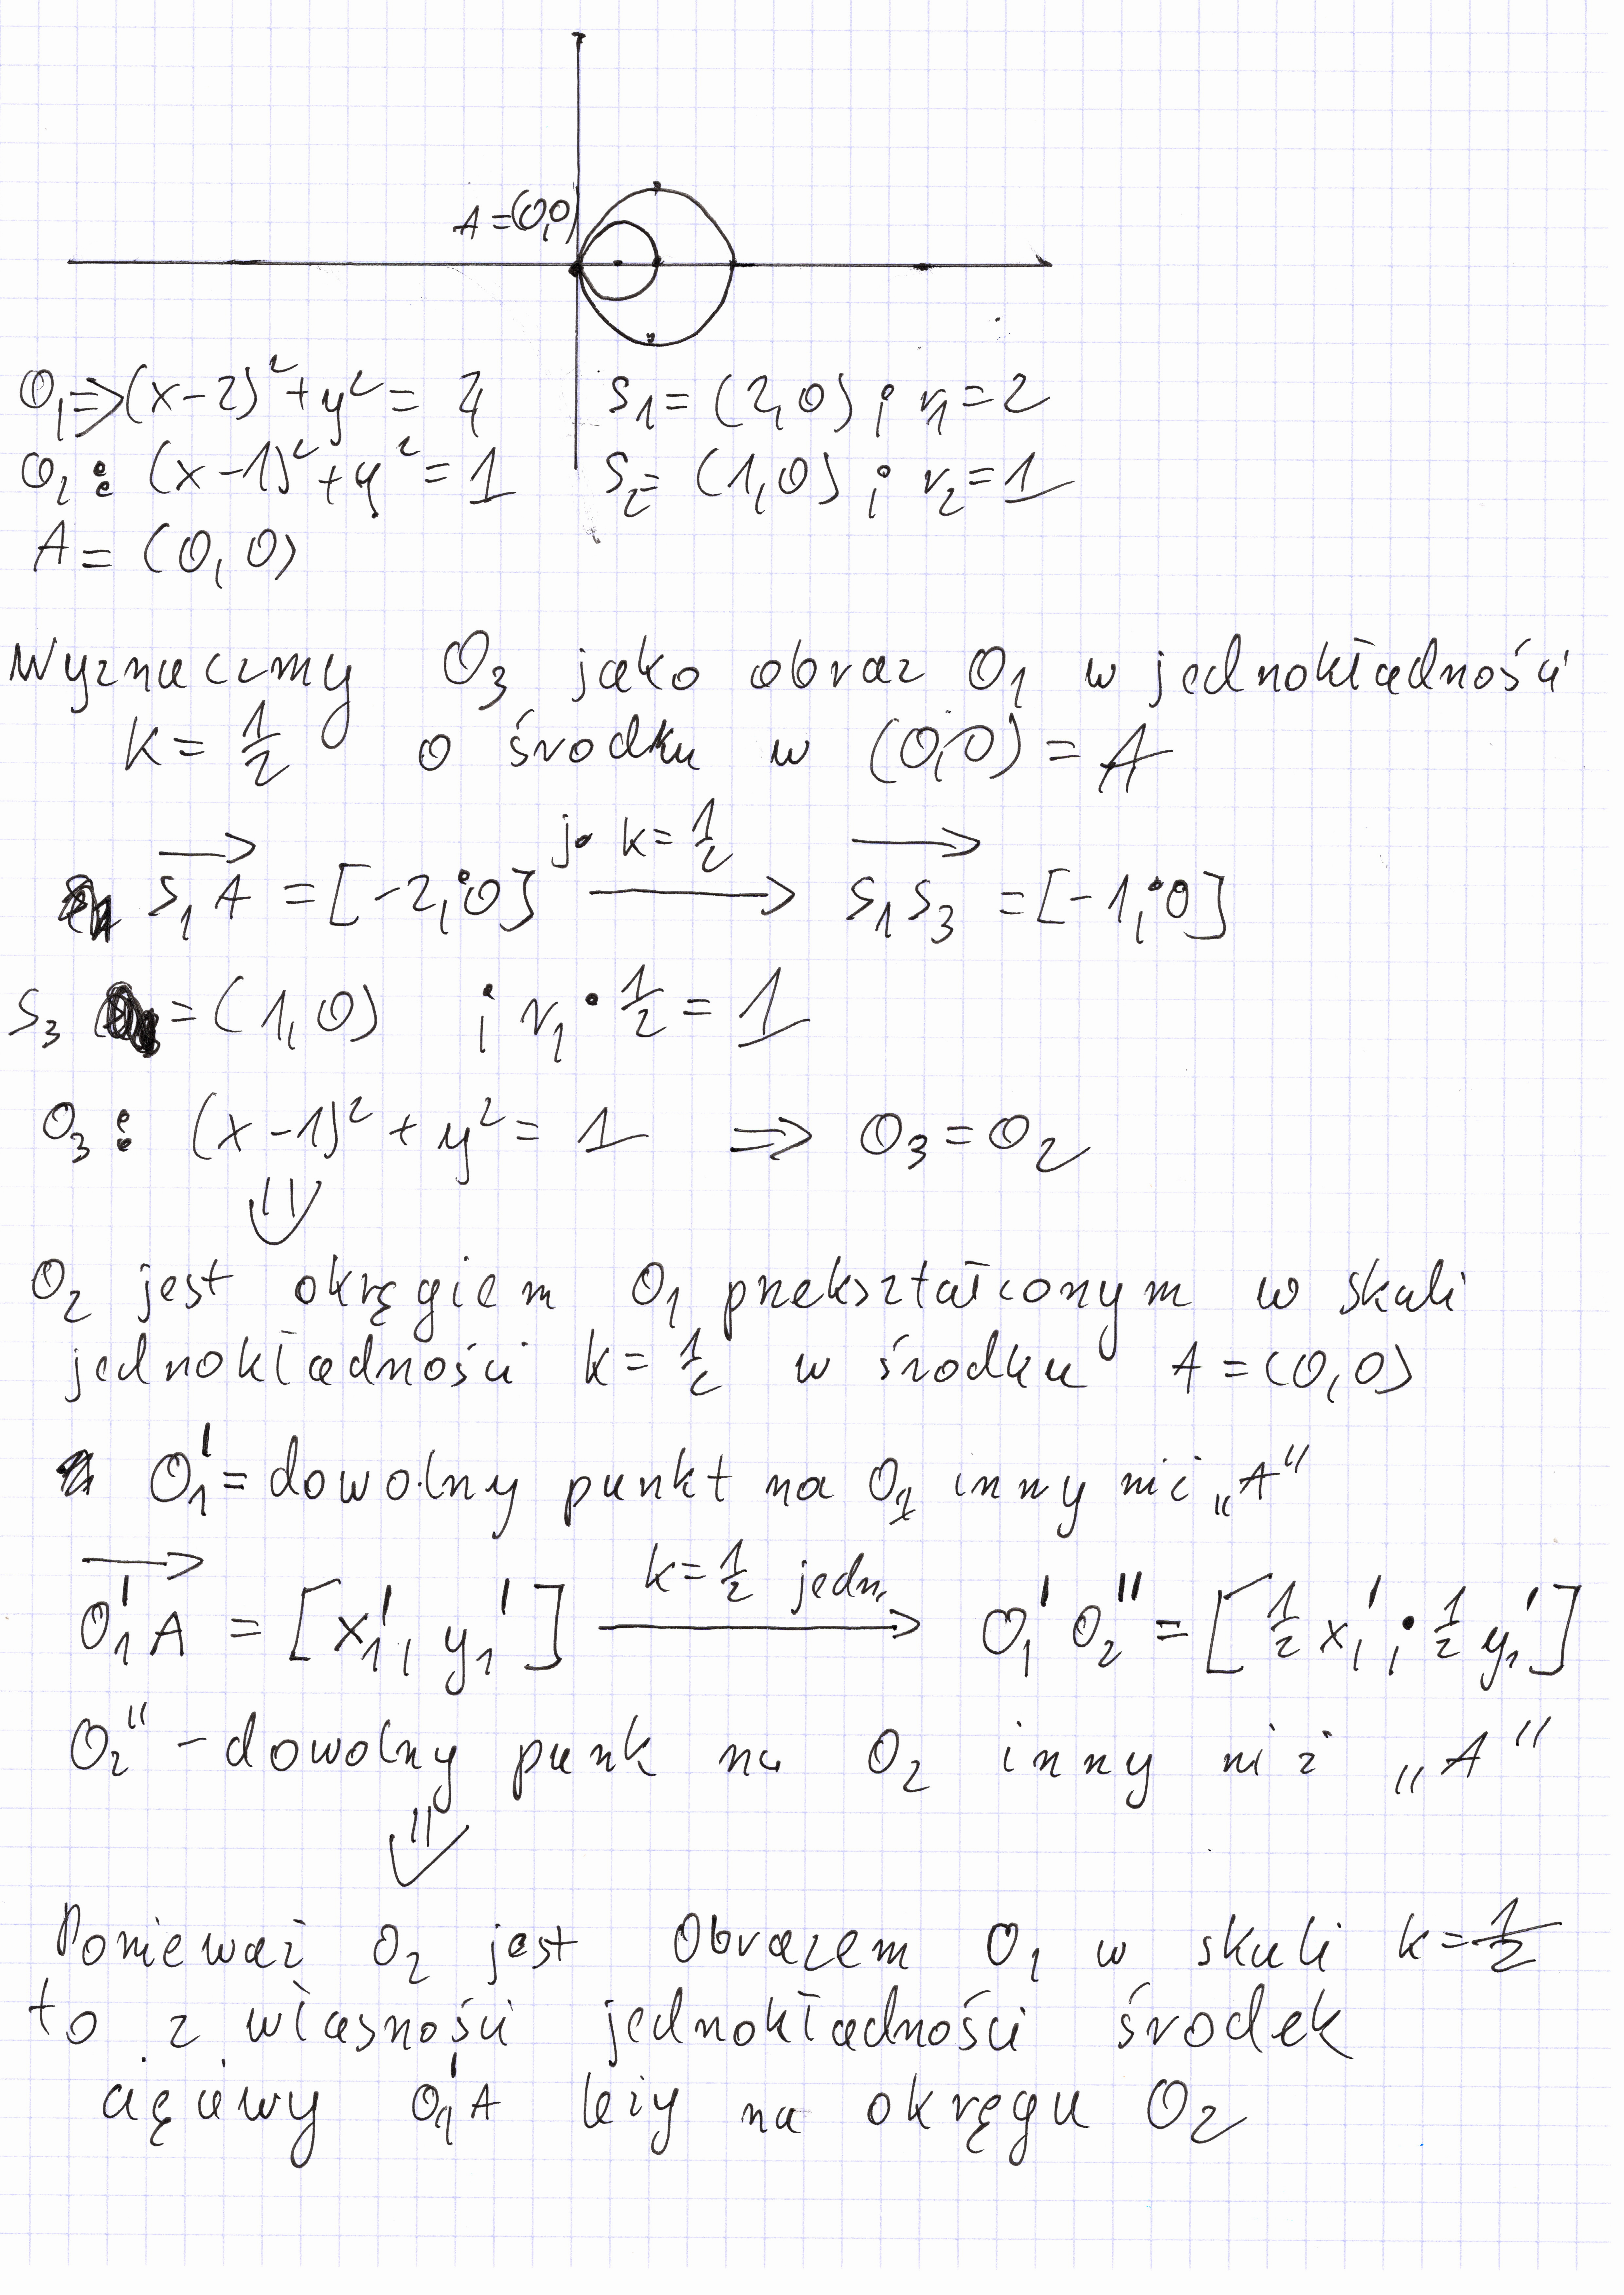 A=(0,0)
O₁⇒(x-2)²+y²=4 S₁=(2,0) i r₁=2
O₂: (x-1)²+y²=1 S₂=(1,0) i r₂=1
A=(0,0)
Wyznaczmy O₃ jako obraz O₁ w jednokładności
k=1/2 o środku w (0,0)=A
S₁A→ = [-2;0] j. k=1/2 → S₁S₃→ = [-1;0]
S₃ = (1,0) i r₁·1/2=1
O₃: (x-1)²+y²=1 ⇒ O₃=O₂
⇓
O₂ jest okręgiem O₁ przekształconym w skali
jednokładności k=1/2 w środku A=(0,0)
O₁'=dowolny punkt na O₁ inny niż „A"
O₁'A→ = [x₁', y₁'] k=1/2 jedn. → O₁'O₂''=[1/2 x₁'; 1/2 y₁']
O₂'' - dowolny punk na O₂ inny niż „A"
⇓
Ponieważ O₂ jest Obrazem O₁ w skali k=1/2
to z własności jednokładności środek
cięciwy O₁'A leży na okręgu O₂